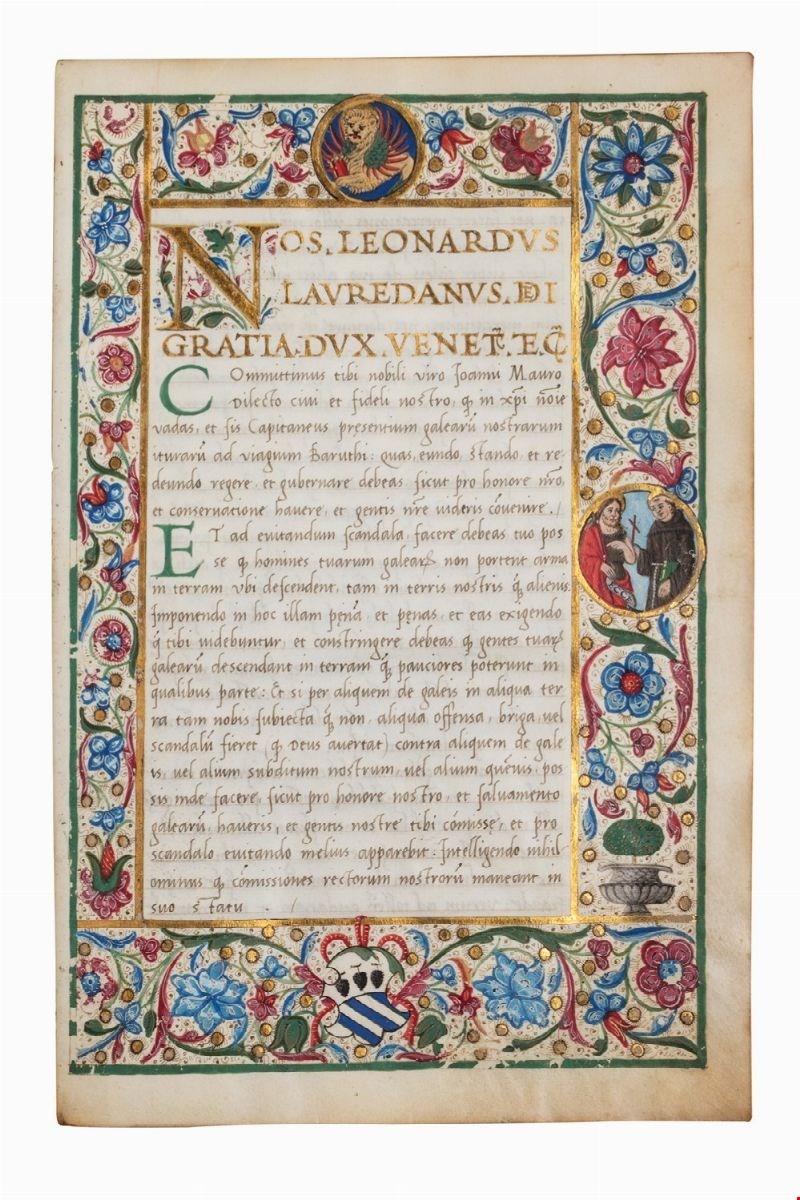 NOS. LEONARDVS
LAVREDANVS. DEI
GRATIA. DVX. VENET. ET. C̃
COmmittimus tibi nobili viro Joanni Mauro
Dilecto ciui et fideli nostro, q̃ in xp̃i nõie
vadas, et sis Capitaneus presentium galearũ nostrarum
iturarũ ad viagium Baruthi: quas, eundo, stando, et re-
deundo regere, et gubernare debeas sicut pro honore nr̃o,
et conseruatione hauere, et gentis nr̃e videris cõuenire. /
ET ad euitandum scandala, facere debeas tuo pos
se q̃ homines tuarum galearꝝ non portent arma
in terram vbi descendent, tam in terris nostris q̃ alienis
Imponendo in hoc illam penã, et penas, et eas exigendo
q̃ tibi uidebuntur, et constringere debeas q̃ gentes tuarꝝ
galearũ descendant in terram q̃ pauciores poterunt in
qualibus parte: Et si per aliquem de galeis in aliqua ter
ra tam nobis subiecta q̃ non, aliqua offensa, briga, vel
scandalũ fieret (q̃ Deus auertat) contra aliquem de gale
is, vel alium subditum nostrum, vel alium quẽuis, pos
sis inde facere, sicut pro honore nostro, et saluamento
galearũ, haueris, et gentis nostre tibi cõmissę, et pro
scandalo euitando melius apparebit: Intelligendo nihil-
ominus q̃ cõmissiones rectorum nostrorũ maneant in
suo statu . /